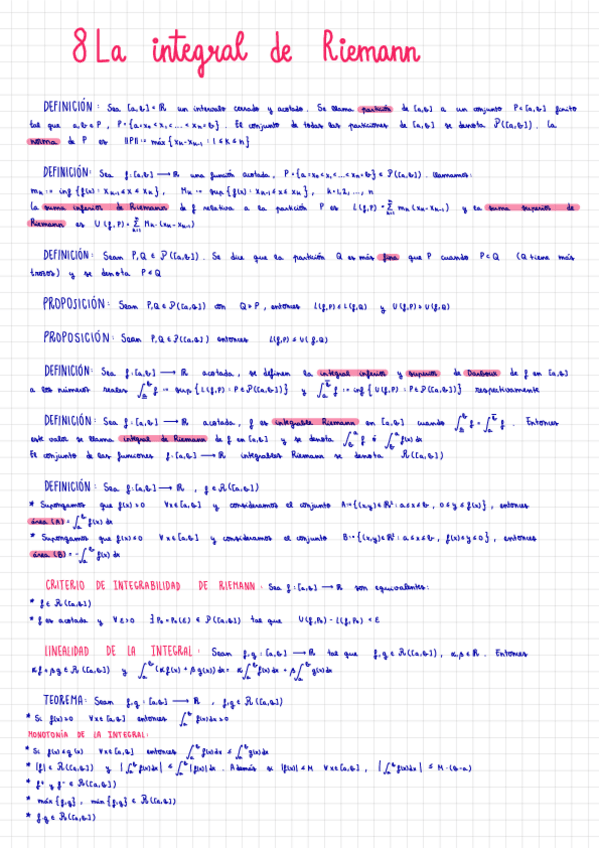 8 La integral de Riemann
DEFINICIÓN: Sea [a,b] ⊂ ℝ un intervalo cerrado y acotado. Se llama partición de [a,b] a un conjunto P⊂[a,b] finito
tal que a,b ∈ P, P={a=x₀<x₁<...<xₙ=b}. El conjunto de todas las particiones de [a,b] se denota 𝒫([a,b]). La
norma de P es ||P|| = máx{xₖ-xₖ₋₁ : 1≤k≤n}
DEFINICIÓN: Sea f:[a,b] ⟶ ℝ una función acotada, P={a=x₀<x₁<...<xₙ=b} ∈ 𝒫([a,b]). Llamamos:
mₖ = inf{f(x): xₖ₋₁≤x≤xₖ}, Mₖ = sup{f(x): xₖ₋₁≤x≤xₖ}, k=1,2,..., n
La suma inferior de Riemann de f relativa a la partición P es L(f,P)=∑ₖ₌₁ⁿ mₖ(xₖ-xₖ₋₁) y la suma superior de
Riemann es U(f,P)=∑ₖ₌₁ⁿ Mₖ(xₖ-xₖ₋₁)
DEFINICIÓN: Sean P,Q ∈ 𝒫([a,b]). Se dice que la partición Q es más fina que P cuando P⊂Q (Q tiene más
trozos) y se denota P<Q
PROPOSICIÓN: Sean P,Q ∈ 𝒫([a,b]) con Q>P, entonces L(f,P)≤L(f,Q) y U(f,P)≥U(f,Q)
PROPOSICIÓN: Sean P,Q ∈ 𝒫([a,b]) entonces L(f,P)≤U(f,Q)
DEFINICIÓN: Sea f:[a,b] ⟶ ℝ acotada, se definen la integral inferior y superior de Darboux de f en [a,b]
a los números reales ∫_a̲^b f := sup{L(f,P): P∈𝒫([a,b])} y ∫_a^b̅ f := inf{U(f,P): P∈𝒫([a,b])} respectivamente
DEFINICIÓN: Sea f:[a,b] ⟶ ℝ acotada, f es integrable Riemann en [a,b] cuando ∫_a̲^b f = ∫_a^b̅ f. Entonces
este valor se llama integral de Riemann de f en [a,b] y se denota ∫_a^b f ó ∫_a^b f(x)dx
El conjunto de las funciones f:[a,b] ⟶ ℝ integrables Riemann se denota ℛ([a,b])
DEFINICIÓN: Sea f:[a,b] ⟶ ℝ, f∈ℛ([a,b])
* Supongamos que f(x)≥0 ∀x∈[a,b] y consideramos el conjunto A={(x,y)∈ℝ²: a≤x≤b, 0≤y≤f(x)}, entonces
área (A) = ∫_a^b f(x)dx
* Supongamos que f(x)≤0 ∀x∈[a,b] y consideramos el conjunto B={(x,y)∈ℝ²: a≤x≤b, f(x)≤y≤0}, entonces
área (B) = -∫_a^b f(x)dx
CRITERIO DE INTEGRABILIDAD DE RIEMANN: Sea f:[a,b] ⟶ ℝ son equivalentes:
* f∈ℛ([a,b])
* f es acotada y ∀ε>0 ∃Pₑ=Pₑ(ε) ∈ 𝒫([a,b]) tal que U(f,Pₑ)-L(f,Pₑ)<ε
LINEALIDAD DE LA INTEGRAL: Sean f,g:[a,b] ⟶ ℝ tal que f,g∈ℛ([a,b]), α,β∈ℝ. Entonces
αf+βg∈ℛ([a,b]) y ∫_a^b (αf(x)+βg(x))dx = α∫_a^b f(x)dx + β∫_a^b g(x)dx
TEOREMA: Sean f,g:[a,b] ⟶ ℝ, f,g∈ℛ([a,b])
* Si f(x)≥0 ∀x∈[a,b] entonces ∫_a^b f(x)dx≥0
MONOTONÍA DE LA INTEGRAL:
* Si f(x)≤g(x) ∀x∈[a,b] entonces ∫_a^b f(x)dx ≤ ∫_a^b g(x)dx
* |f|∈ℛ([a,b]) y |∫_a^b f(x)dx| ≤ ∫_a^b |f(x)|dx. Además si |f(x)|≤M ∀x∈[a,b], |∫_a^b f(x)dx| ≤ M·(b-a)
* f⁺ y f⁻ ∈ ℛ([a,b])
* máx{f,g}, mín{f,g} ∈ ℛ([a,b])
* f·g∈ℛ([a,b])